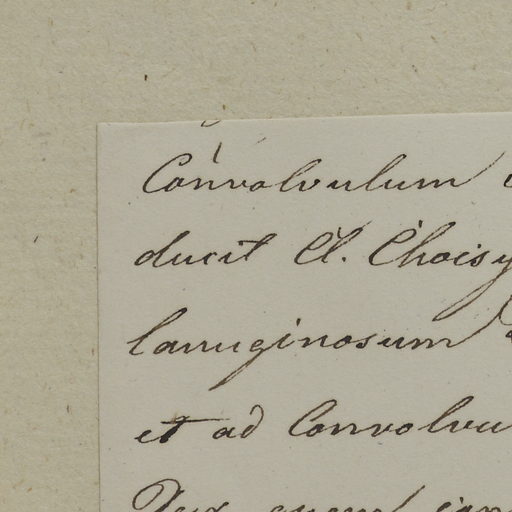 Convolvulum
ducit Cl. Choisy
lanuginosum
et ad Convolvu